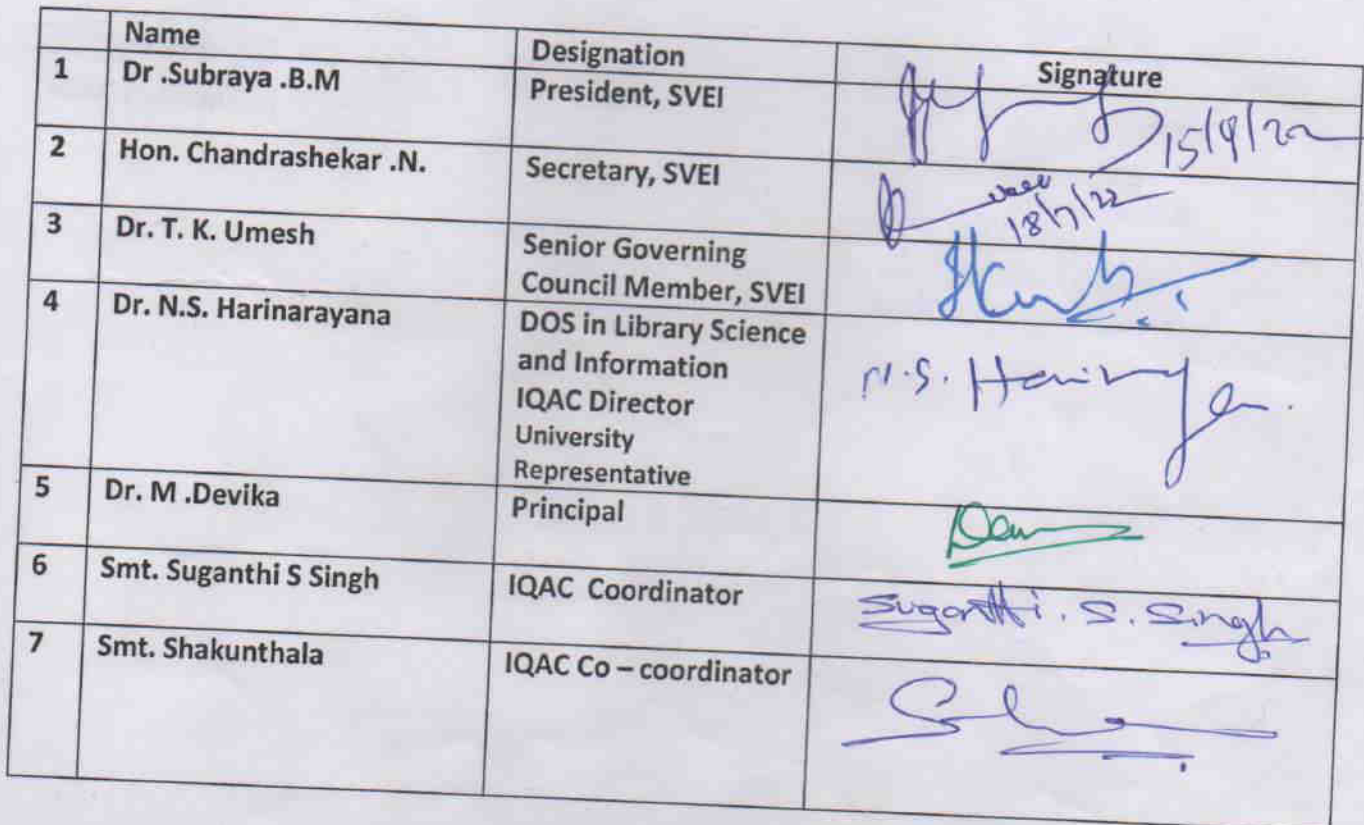 Name Designation Signature
1 Dr .Subraya .B.M President, SVEI
2 Hon. Chandrashekar .N. Secretary, SVEI
18/7/22
3 Dr. T. K. Umesh Senior Governing
Council Member, SVEI
4 Dr. N.S. Harinarayana DOS in Library Science
and Information
IQAC Director
University
Representative
N.S.
5 Dr. M .Devika Principal
6 Smt. Suganthi S Singh IQAC Coordinator Suganthi. S. Singh
7 Smt. Shakunthala IQAC Co – coordinator